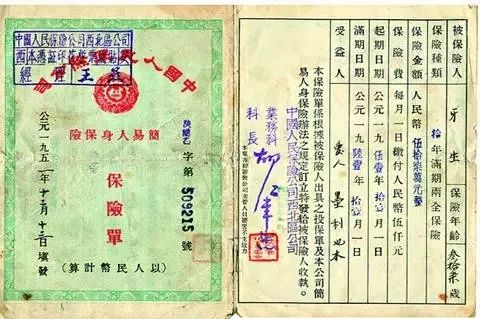 中國人民保險公司西北區公司
簡易人身保險
保險單
字第509215號
公元一九五一年十二月十三日填發
(以人民幣計算)
被保險人 牙生 保險年齡 叁拾柒歲
保險種類 拾年滿期兩全保險
保險金額 人民幣伍拾柒萬元整
保險費 每月一日繳付人民幣伍仟元
起期日期 公元一九伍壹年拾壹月一日
滿期日期 公元一九陸壹年拾壹月一日
受益人
本保險單係根據被保險人出具之投保單及本公司簡
易人身保險辦法之規定訂立特發給被保險人收執。
中國人民保險公司西北區公司
業務科
科長